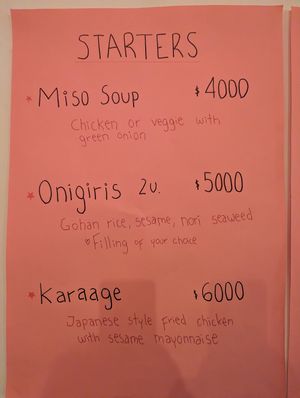 STARTERS
* Miso Soup $4000
Chicken or veggie with
green onion
* Onigiris 2u. $5000
Gohan rice, sesame, nori seaweed
♥ Filling of your choice
* Karaage $6000
Japanese style fried chicken
with sesame mayonnaise